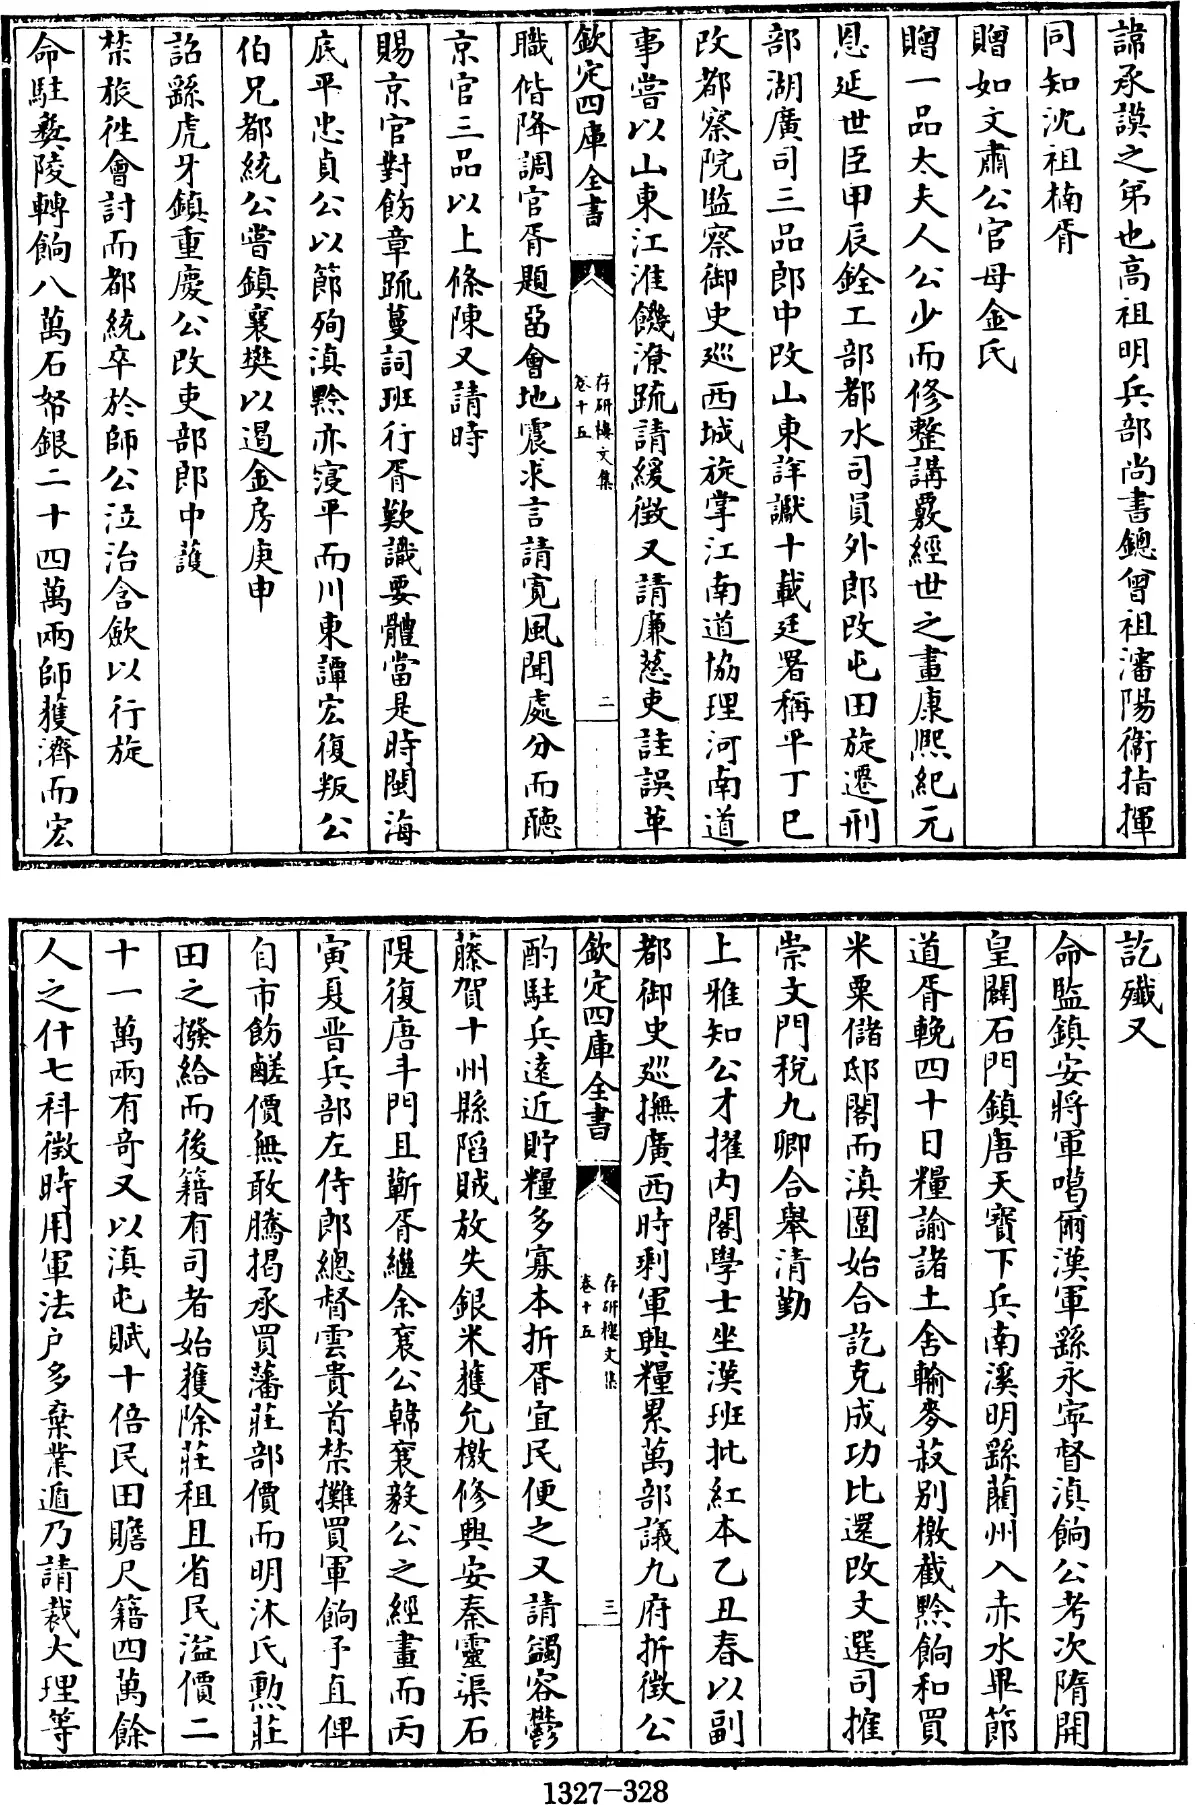 諦承謨之弟也高祖明兵部尚書鏓曾祖瀋陽衞指揮
同知沈祖楠胥
贈如文肅公官母金氏
贈一品太夫人公少而修整講覈經世之畫康熈紀元
恩延世臣甲辰銓工部都水司員外郎改屯田旋遷刑
部湖廣司三品郎中改山東詳讞十載廷署稱平丁巳
改都察院監察御史廵西城旋掌江南道協理河南道
事嘗以山東江淮饑潦疏請緩徴又請廉慈吏詿誤革
欽定四庫全書
存研樓文集
卷十五
二
職偕降調官胥題留會地震求言請寛風聞處分而聽
京官三品以上條陳又請時
賜京官對飭章疏蔓詞班行胥歎識要體當是時閩海
底平忠貞公以節殉滇黔亦寖平而川東譚宏復叛公
伯兄都統公嘗鎮襄樊以遏金房庚申
詔繇虎牙鎮重慶公改吏部郎中護
禁旅徃會討而都統卒於師公涖治含歛以行旋
命駐彞陵轉餉八萬石帑銀二十四萬兩師獲濟而宏
訖殲又
命監鎮安將軍噶爾漢軍繇永寧督滇餉公考次隋開
皇闢石門鎮唐天寳下兵南溪明繇藺州入赤水畢節
道胥輓四十日糧諭諸土舍輸麥菽别檄截黔餉和買
米粟儲邸閣而滇圍始合訖克成功比還改文選司推
崇文門稅九卿合舉清勤
上雅知公才擢内閣學士坐漢班批紅本乙丑春以副
都御史廵撫廣西時剩軍興糧累萬部議九府折徴公
欽定四庫全書
存研樓文集
卷十五
三
酌駐兵逺近貯糧多寡本折胥宜民便之又請蠲容鬱
藤賀十州縣䧟賊放失銀米獲允檄修興安秦靈渠石
隄復唐斗門且蘄胥繼余襄公韓襄毅公之經畫而丙
寅夏晋兵部左侍郎總督雲貴首禁攤買軍餉予直俾
自市飭鹺價無敢騰掲承買藩莊部價而明沐氏勲莊
田之撥給而後籍有司者始獲除莊租且省民溢價二
十一萬兩有奇又以滇屯賦十倍民田贍尺籍四萬餘
人之什七科徴時用軍法户多棄業遁乃請裁大理等
1327-328